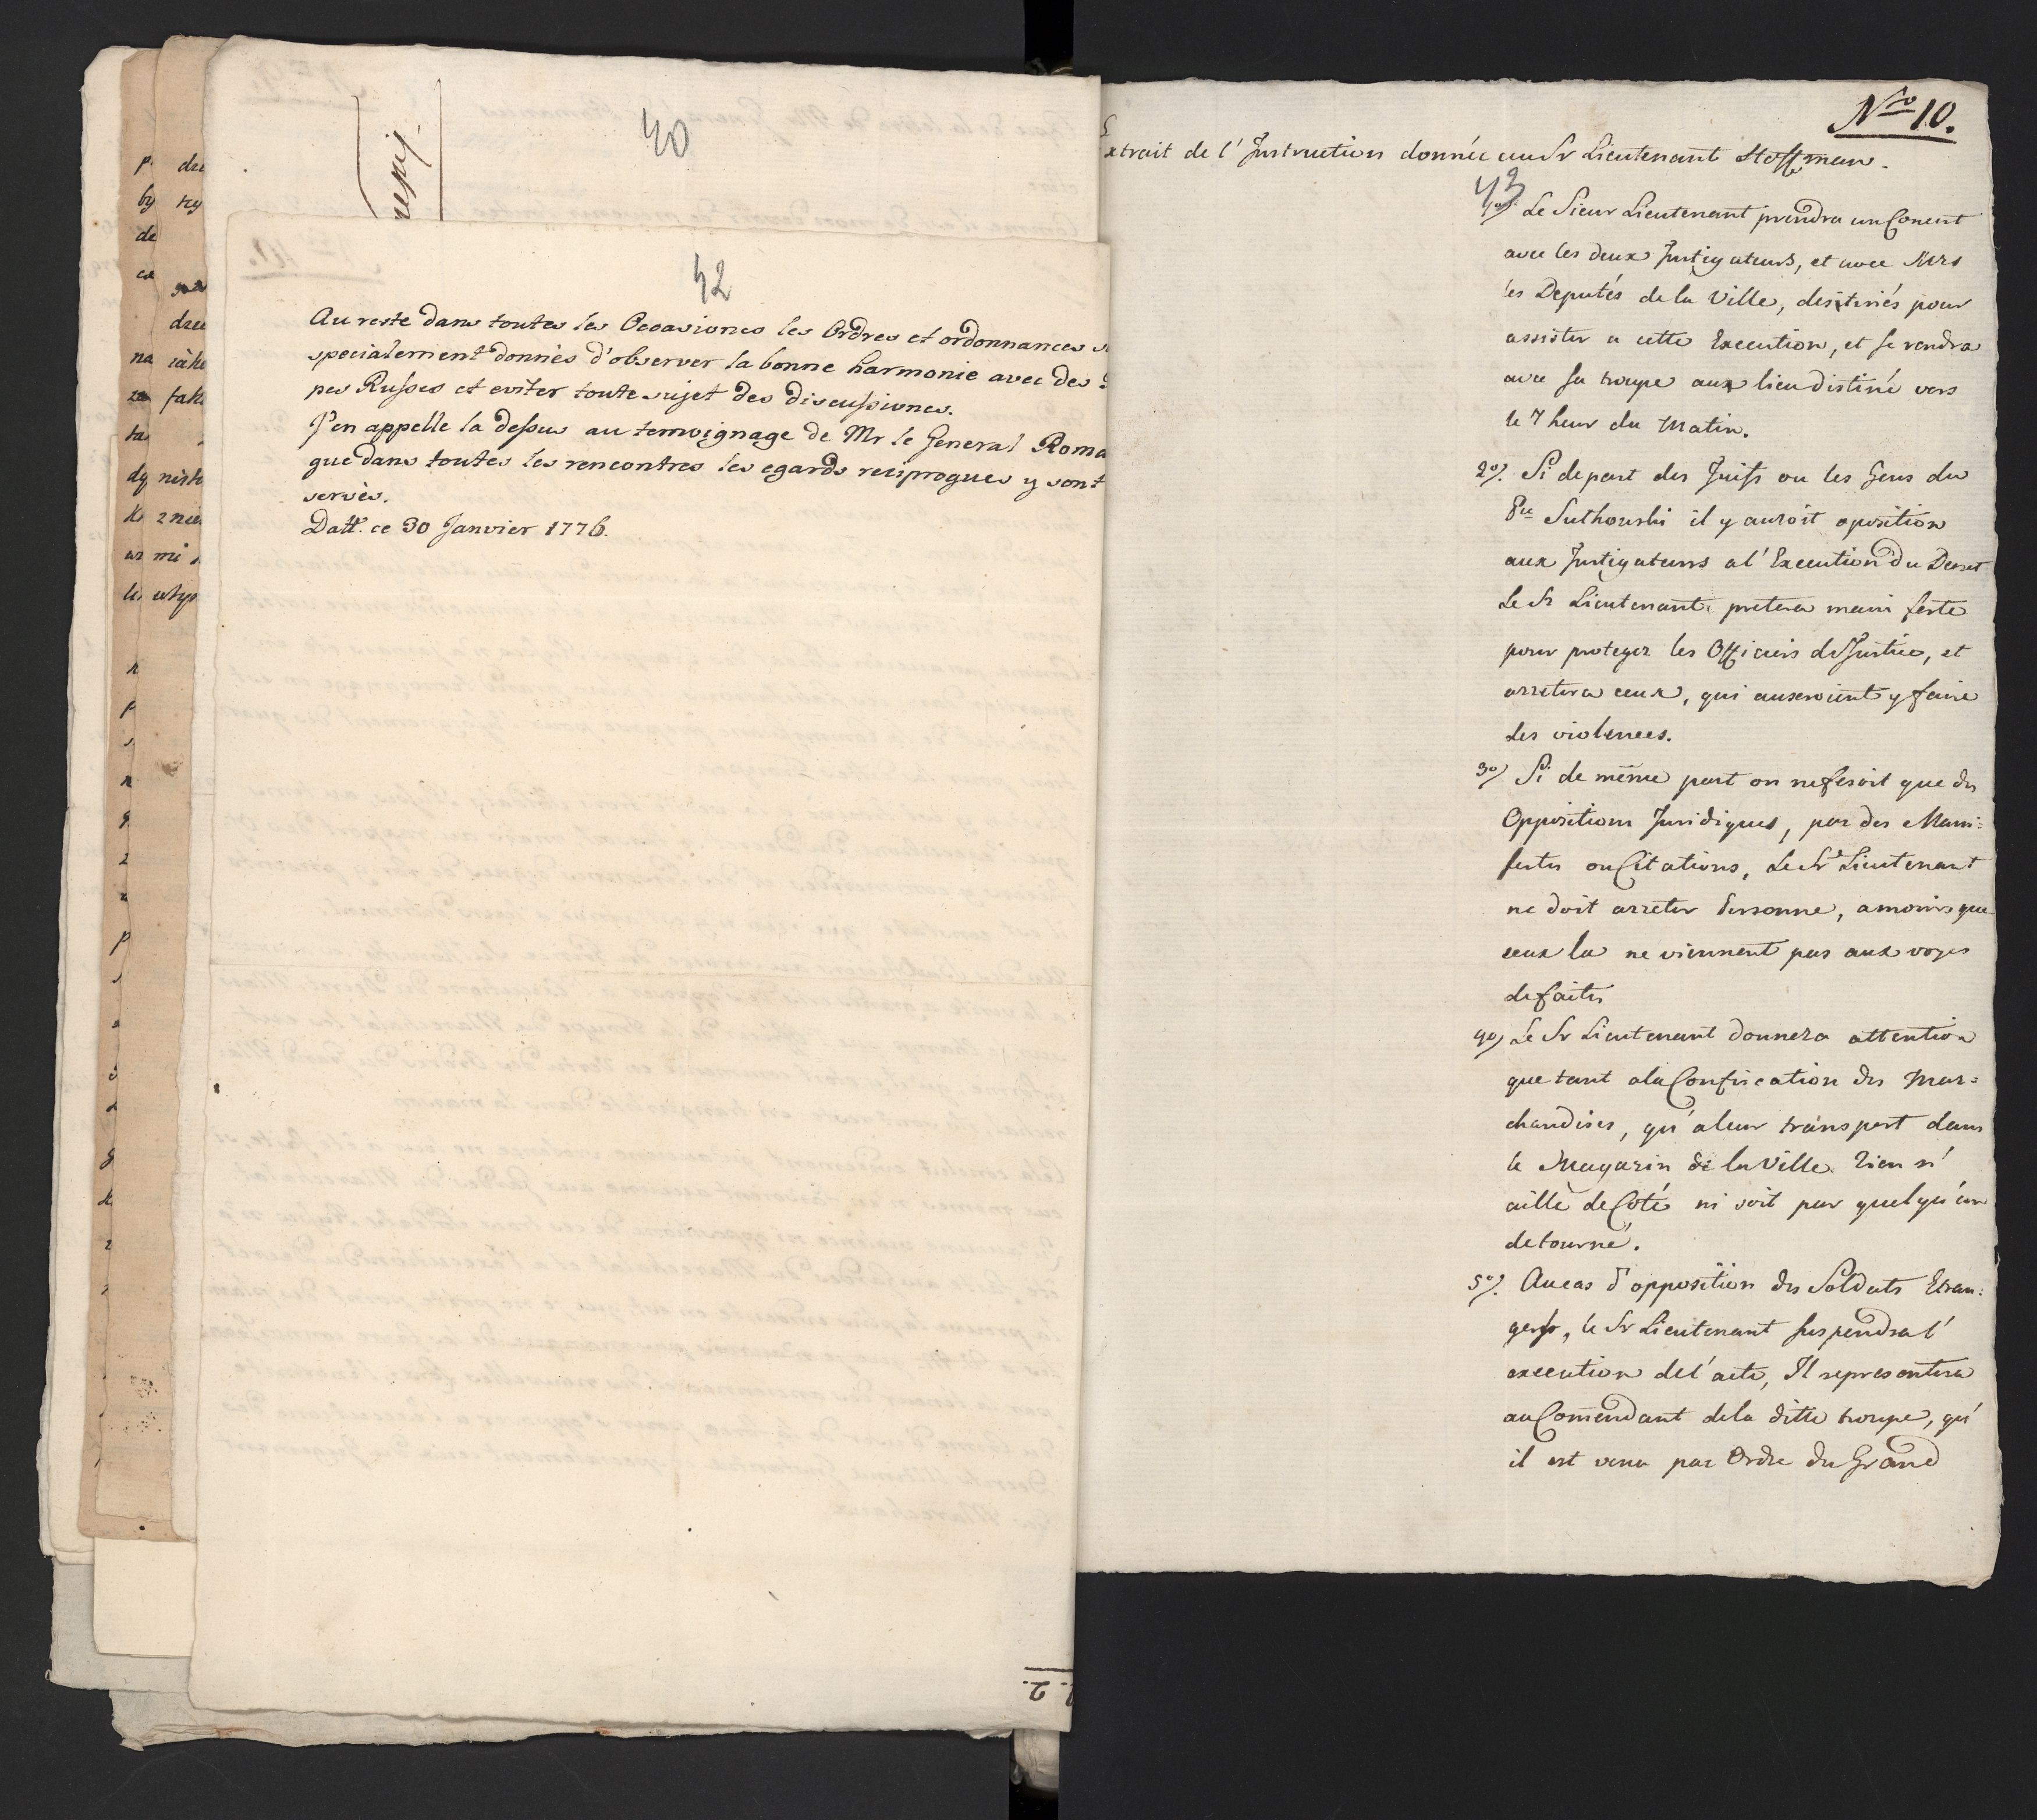 40
42
Au reste dans toutes les Occasiones les Ordres et ordonnances
specialement donnès d'observer la bonne harmonie avec des
pes Russes et eviter toute sujet des discussiones.
J'en appelle la dessus au temoignage de Mr le General Roma
que dans toutes les rencontres les egards reciproques y sont
servès.
Datt. ce 30 Janvier 1776.
Nro 10.
Extrait de l'Instruction donnée au Sr Lieutenant Hoffman.
43
1o/ Le Sieur Lieutenant prendra un Concert
avec les deux Instigateurs, et avec Mrs
les Deputés de la Ville, destinés pour
assister a cette Execution, et se rendra
avec sa troupe aux lieu distiné vers
le 7 heur du Matin.
2o/. Si de part des Juifs ou les Gens du
Pce Suthowski il y auroit oposition
aux Instigateurs a l'Execution du Decret
Le Sr Lieutenant pretera main forte
pour proteger les Officiers de Justice, et
arretera ceux, qui auseroient y faire
des violences.
3o/ Si de même part on ne feroit que des
Oppositions Juridiques, par des Mani=
festes ou Citations, Le Sr Lieutenant
ne doit arreter Personne, a moins que
ceux la ne viennent pas aux voyes
de faites
4o/ Le Sr Lieutenant donnera attention
que tant a la Confiscation des Mar=
chandises, qu'a leur transport dans
le Magazin de la Ville rien n'
aille de Coté ni soit par quelqu'un
detourné.
5o/. Au cas d'opposition des Soldats Etran=
gers, le Sr Lieutenant suspendra l'
execution de l'acte, Il representera
au Comendant de la ditte troupe, qu'
il est venu par Ordre du Grand